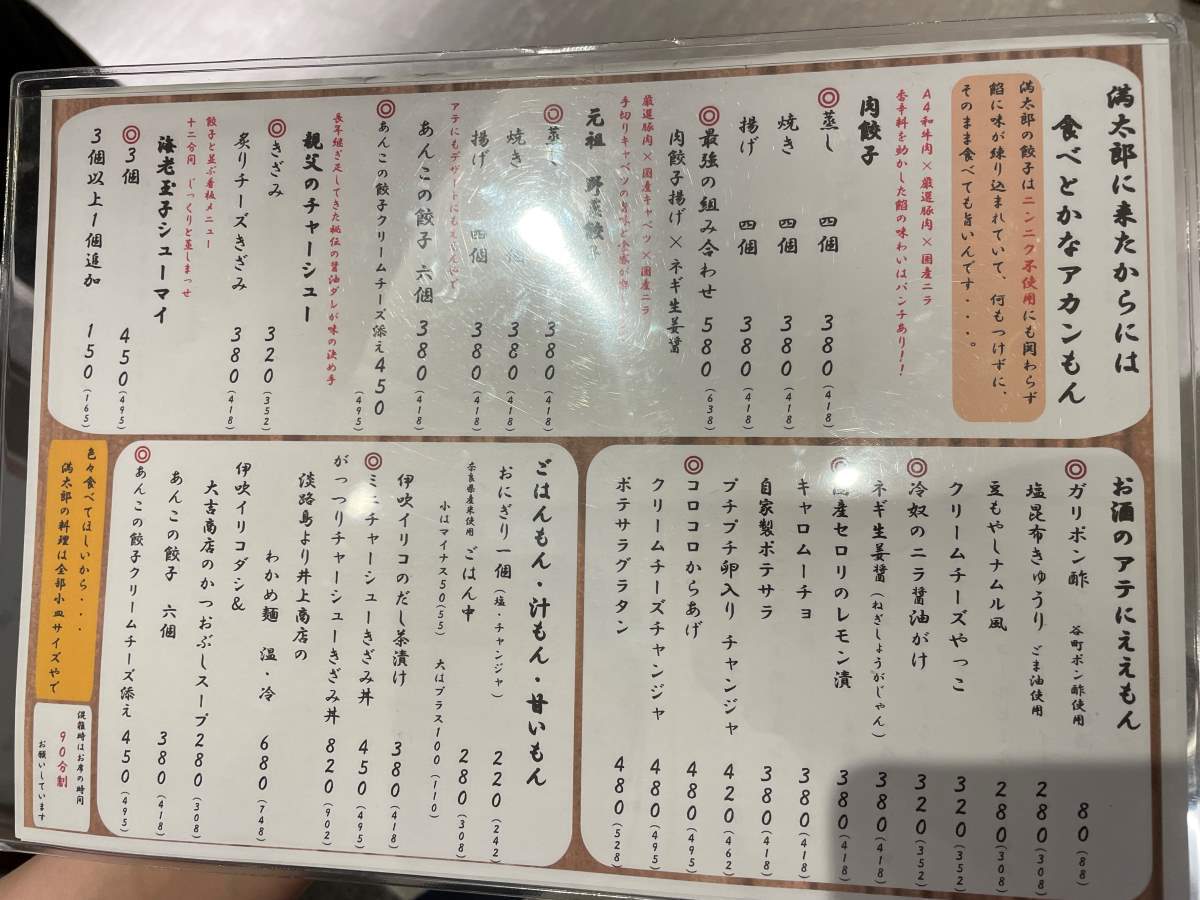 満太郎に来たからには
食べとかなアカンもん
満太郎の餃子はニンニク不使用にも関わらず
餡に味が練り込まれていて、何もつけずに、
そのまま食べても旨いんです・・・。
A4和牛肉×厳選豚肉×国産ニラ
香辛料を効かした餡の味わいはパンチあり!!
肉餃子
◎蒸し 四個 380(418)
焼き 四個 380(418)
揚げ 四個 380(418)
◎最強の組み合わせ 580(638)
肉餃子揚げ×ネギ生姜醤
厳選豚肉×国産キャベツ×国産ニラ
手切りキャベツの
元祖 野菜餃子
◎蒸し 380(418)
焼き 四個 380(418)
揚げ 四個 380(418)
アテにもデザートにもええんやで
あんこの餃子 六個 380(418)
◎あんこの餃子クリームチーズ添え 450(495)
長年継ぎ足してきた秘伝の醤油ダレが味の決め手
親父のチャーシュー
◎きざみ 320(352)
炙りチーズきざみ 380(418)
餃子と並ぶ看板メニュー
十二分間 じっくりと蒸しまっせ
海老玉子シューマイ
◎3個 450(495)
3個以上1個追加 150(165)
お酒のアテにええもん
◎ガリポン酢 谷町ポン酢使用 80(88)
塩昆布きゅうり ごま油使用 280(308)
豆もやしナムル風 280(308)
クリームチーズやっこ 320(352)
◎冷奴のニラ醤油がけ 320(352)
ネギ生姜醤(ねぎしょうがじゃん) 380(418)
◎国産セロリのレモン漬 380(418)
キャロムーチョ 380(418)
自家製ポテサラ 380(418)
プチプチ卵入り チャンジャ 420(462)
◎コロコロからあげ 480(495)
クリームチーズチャンジャ 480(495)
ポテサラグラタン 480(528)
ごはんもん・汁もん・甘いもん
おにぎり一個(塩・チャンジャ) 220(242)
奈良県産米使用 ごはん中 280(308)
小はマイナス50(55) 大はプラス100(110)
伊吹イリコのだし茶漬け 380(418)
◎ミニチャーシューきざみ丼 450(495)
がっつりチャーシューきざみ丼 820(902)
淡路島より井上商店の
わかめ麺 温・冷 680(748)
伊吹イリコダシ&
大吉商店のかつおぶしスープ 280(308)
あんこの餃子 六個 380(418)
◎あんこの餃子クリームチーズ添え 450(495)
色々食べてほしいから・・・・
満太郎の料理は全部小皿サイズやで
混雑時はお席の時間
90分制
お願いしています